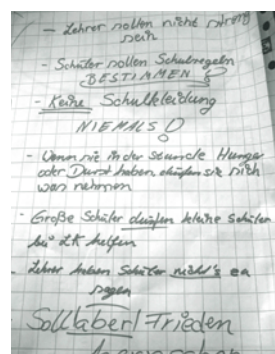 - Lehrer sollen nicht streng
sein
- Schüler sollen Schulregeln
BESTIMMEN
- Keine Schulkleidung
NIEMALS!
- Wenn sie in der stunde Hunger
oder Durst haben dürfen sie sich
was nehmen
- Große Schüler dürfen kleine Schüler
bei LK helfen
- Lehrer haben Schüler nicht's zu
sagen
Soll über! Frieden